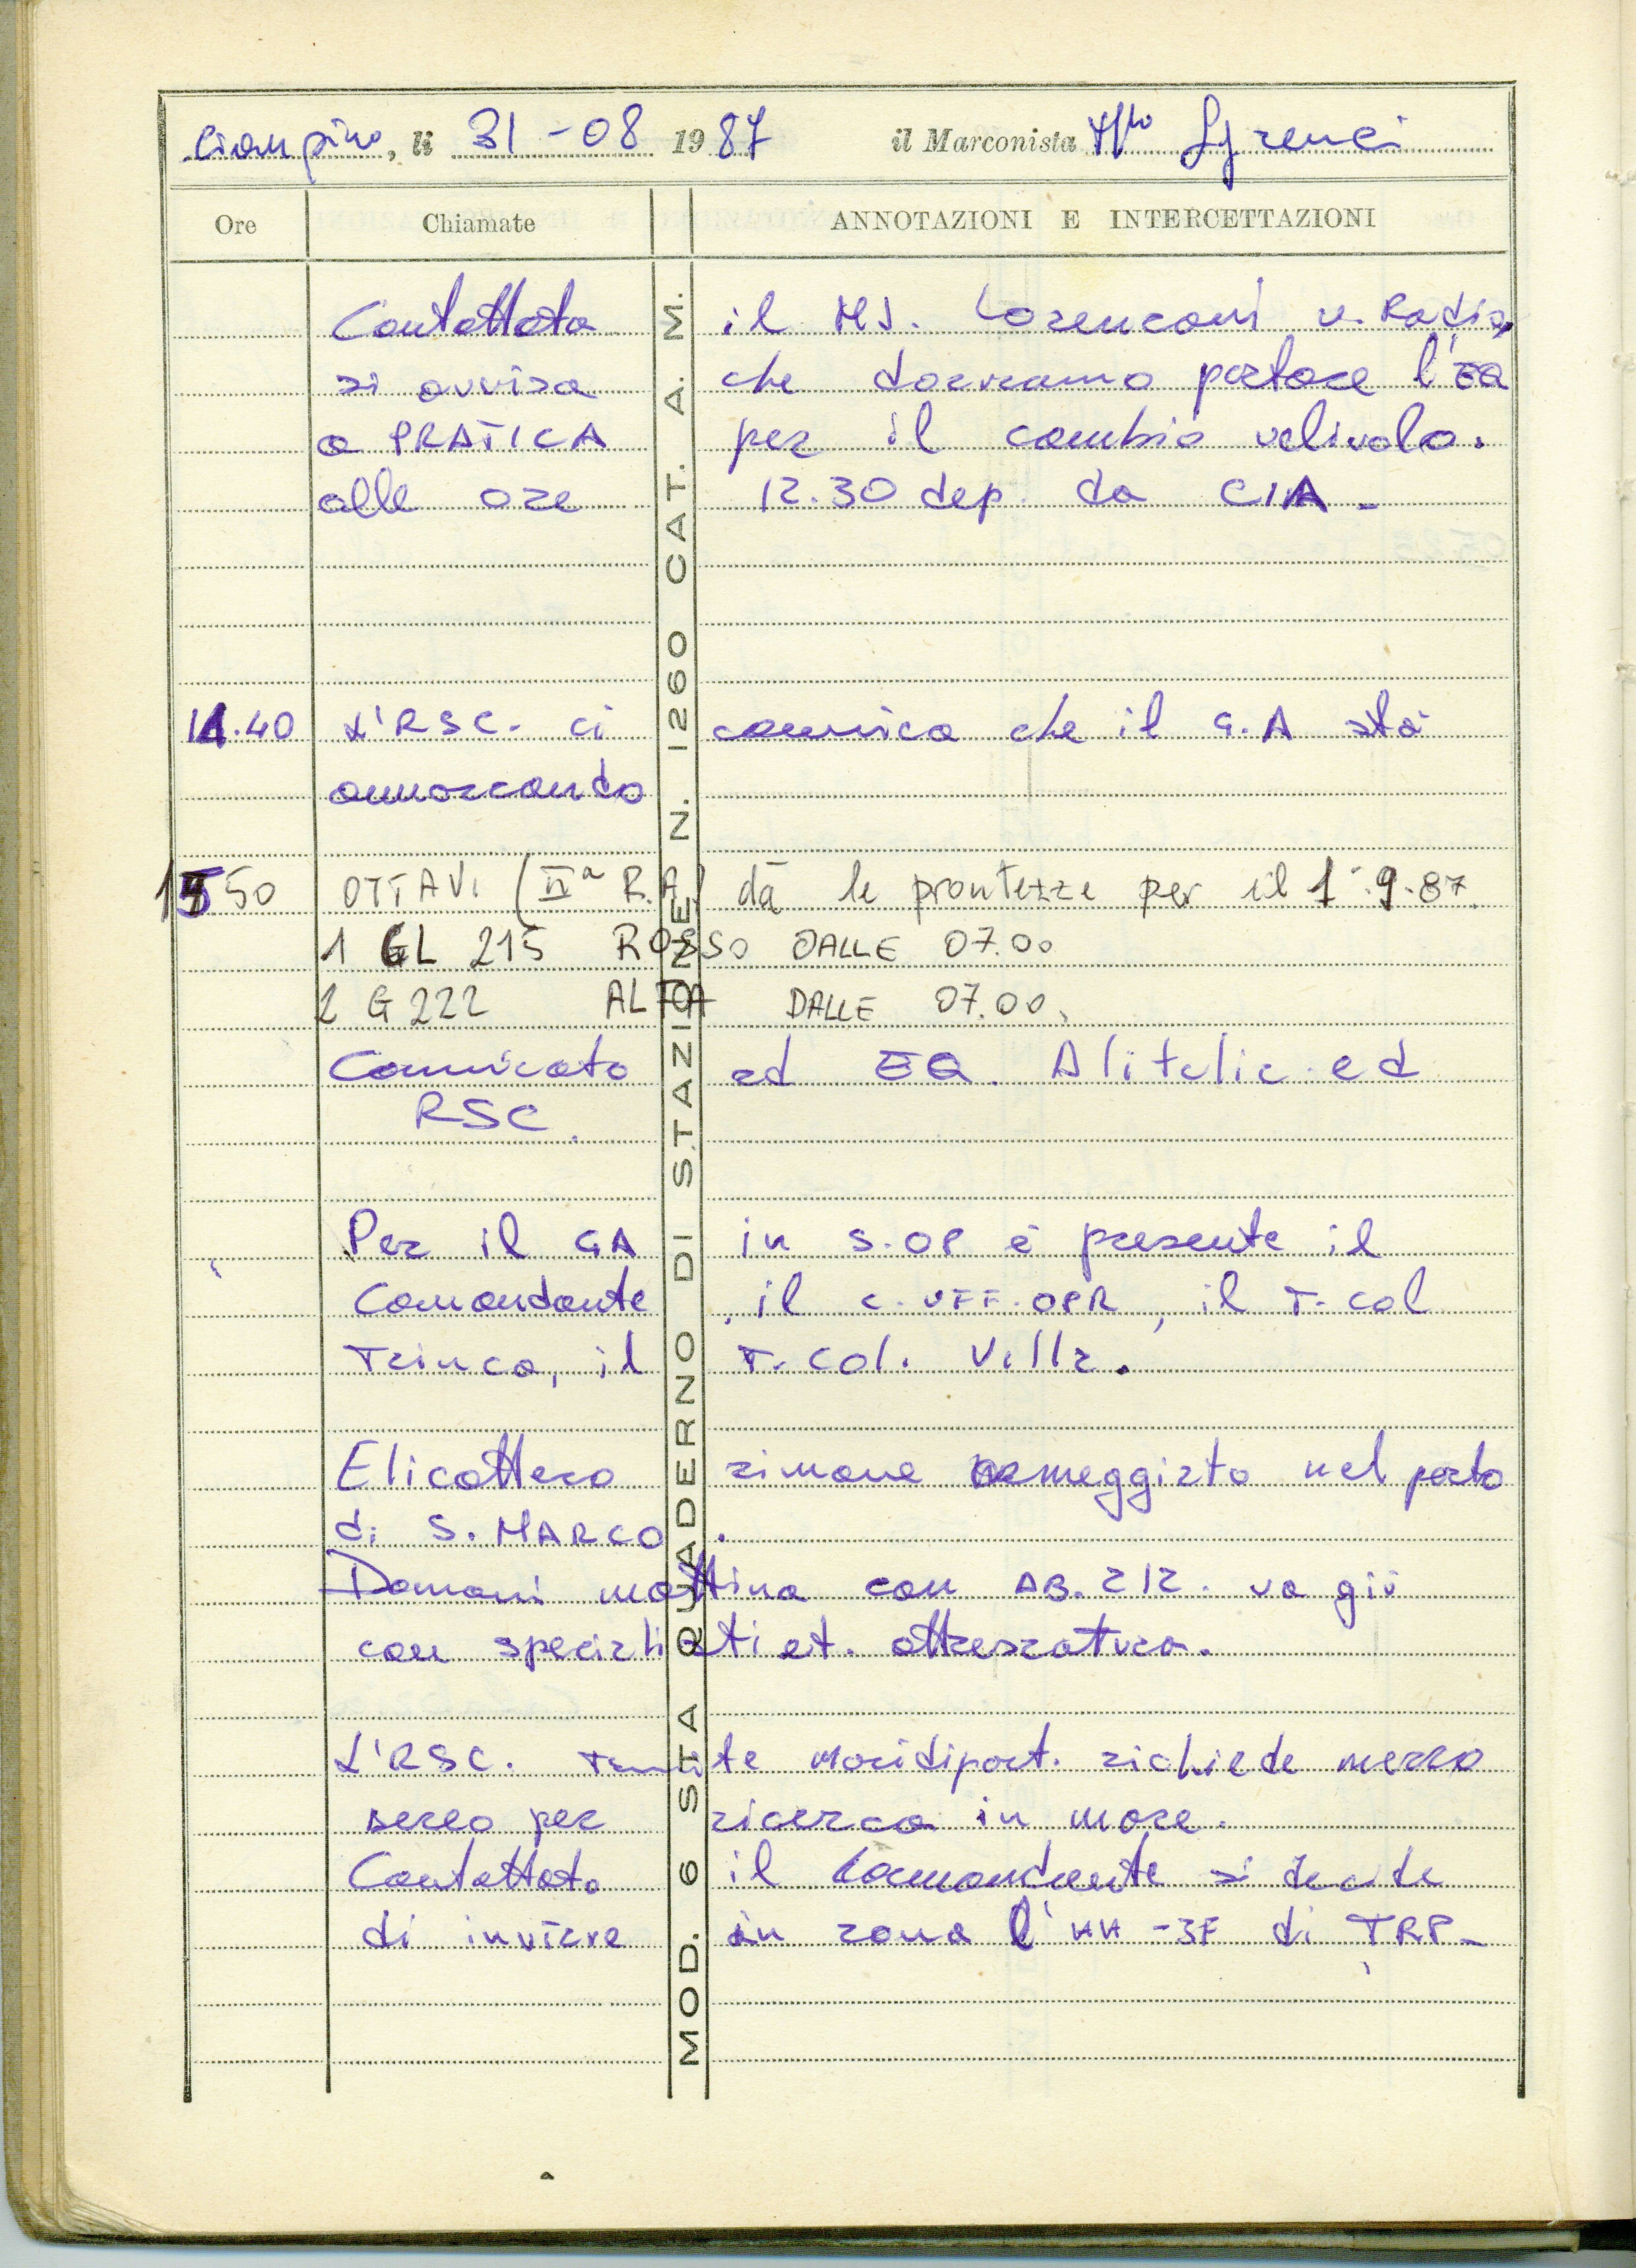 Ciampino, li 31-08 1987 il Marconista M.llo Sgrenci
Ore Chiamate ANNOTAZIONI E INTERCETTAZIONI
Contattato il MJ. Lorenconi v. Radio,
si avvisa che dovremo portare l'EQ
a PRATICA per il cambio velivolo.
alle ore 12.30 dep. da CIA -
11.40 L'RSC. ci comunica che il G.A stà
ammarcando
1550 OTTAVI (IIª R.A) dà le prontezze per il 1°.9.87.
1 GL 215 ROSSO DALLE 07.00
2 G222 ALTA DALLE 07.00.
Comunicato ad EQ. Alitalia ed
RSC.
Per il GA in S.OP è presente il
Comandante, il C.UFF.OPR, il T.Col
Trinca, il T.Col. Villa.
Elicottero rimane ormeggiato nel porto
di S. MARCO.
Domani mattina con AB.212. va giù
con specialisti et. attrezzatura.
L'RSC. Tramite Maridiport. richiede mezzo
aereo per ricerca in mare.
Contattato il Comandante si decide
di inviare in zona l'HH-3F di TRP-
MOD. 6 STA QUADERNO DI STAZIONE N. 1260 CAT. A. M.